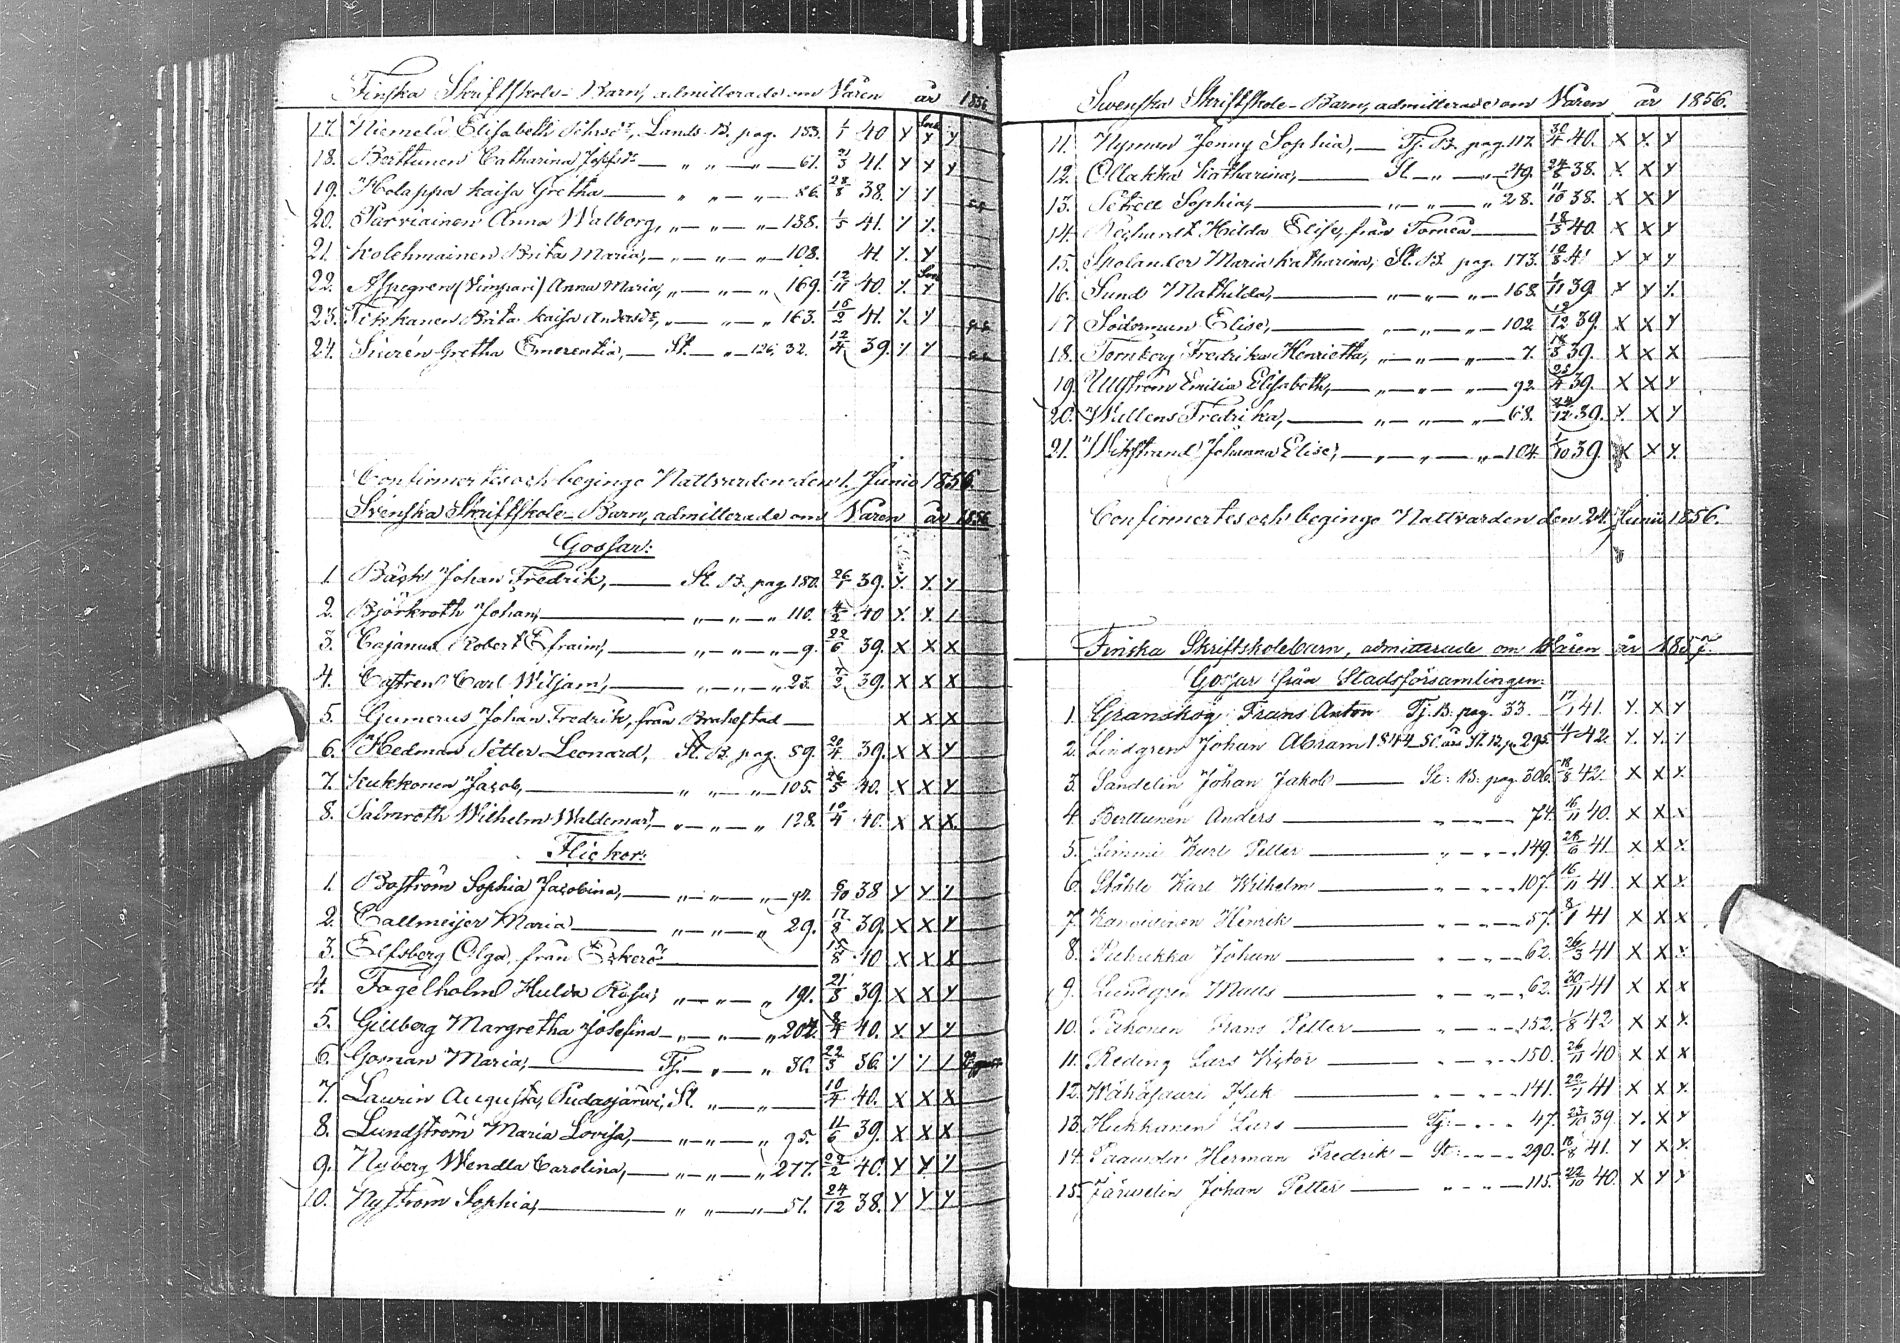 Finska Skriftskole-Barn, admitterade om Våren år 1856.
17. Niemelä Elisabeth Lands B. pag. 183. 1/1 40 y y y
18. Berttunen Catharina Josefsdr — „ „ — „ — 61. 21/3 41. y y y
19. Holappa Kaisa Gretha — „ „ — „ — 86. 28/8 38. y y
20. Parviainen Anna Walborg, „ — „ — „ — 138. 1/5 41. y y.
21. Kolehmainen Brita Maria, — „ — „ — „ — 108. 41. y. y
22. Aspegren (Vimpari) Anna Maria, „ — „ — „ 169. 12/11 40. y. y
23. Tikkanen Brita Kaisa Andersdr, „ — „ — „ 163. 15/2 41. y. y
24. Siurén Gretha Emerentia, — St. — „ 126, 32. 12/4 39. y y
Confirmertes och begingo Nattvarden den 1. Junii 1856.
Svenska Skriftskole-Barn, admitterade om Våren år 1856
Gossar:
1. Bäck Johan Fredrik, — St. B. pag. 180. 26/1 39. y. y. y
2. Björkroth Johan, — „ — „ — „ 110. 4/2 40 y. y. y
3. Cajanus Robert Efraim, — „ — „ — „ 9. 22/6 39. x x x
4. Castren Carl Wiljam, — „ — „ — „ 23. 7/2 39. x x x
5. Gumerus Johan Fredrik, från Brahestad — x x x
6. Hedman Petter Leonard, St. B. pag. 59. 20/4 39. x x y
7. Kukkonen Jacob, — „ „ — „ — „ 105. 26/5 40. x x y
8. Salmroth Wilhelm Waldemar, — „ — „ — „ 128. 10/4 40. x x x
Flickor:
1. Boström Sophia Jacobina, — „ — „ — „ — 94. 6/10 38 y y y
2. Callmeijer Maria — „ — „ — „ 29. 17/8 39. x x y
3. Elfsberg Olga, från — 15/8 40 x x x
4. Fogelholm Hulda Rosa; „ — „ — „ 191. 21/8 39. x x y
5. Gillberg Margretha Josefina — „ — „ — „ 202. 8/4 40. x. y y
6. Goman Maria, — Tj. — „ — „ 30. 22/3 36. y y y
7. Laurin Augusta, Pudasjärvi, St. „ — „ — 10/4 40. x x x
8. Lundström Maria Lovisa, — „ — „ — „ 95. 11/6 39. x x x
9. Nyberg Wendla Carolina, — „ — „ — „ 277. 22/2 40. y y. y
10. Nyström Sophia, — „ „ — „ — 51. 24/12 38. y y y
Svenska Skriftskole-Barn, admitterade om Våren år 1856.
11. Nyman Jenny Sophia, — Tj. B. pag. 117. 30/4 40. x y. y
12. Ollakka Katharina, — St. — „ — „ — 49. 24/8 38. x x y
13. Sophia, — „ — „ — „ 28. 11/10 38. x x y
14. Hilda Elise, från Torneå — 18/5 40. x x y
15. Spolander Maria Katharina, St. B. pag. 173. 10/8 41 y y y
16. Sund Mathilda, — „ — „ — „ — 168. 1/11 39 y y y.
17 Söderman Elise, — „ — „ — „ — 102 12/12 39. x x y
18. Tornberg Fredrika Henrietta, — „ „ — „ — 7. 18/8 39. x x x
19. Ullström Emilia Elisabeth, — „ „ — „ — 92. 28/4 39. x x y
20. Wallens Fredrika, — „ — „ — „ — 68. 24/12 39. y. x y
21. Wikstrand Johanna Elise, — „ — „ — „ 104. 1/10 39 x x y.
Confirmertes och begingo Nattvarden den 24. Junii 1856.
Finska Skriftskolebarn, admitterade om Våren år 1857.
Gossar från Stadsförsamlingen.
1. Granskog Frans Anton Tj. B. pag. 33. 17/1 41. y. x y
2. Lindgren Johan Abram 1844 St. B. p. 295. 4/4 42. y. y. y
3. Sandelin Johan Jakob — St. B. pag. 306. 18/8 42. x x y
4. Berttunen Anders — „ — „ — 74. 16/11 40. x x x
5. Limmi Karl Petter — „ — „ — „ 149. 28/6 41. x x x
6. Ståhle Karl Wilhelm — „ — „ — „ 107. 16/11 41. x x x.
7. Henrik — „ — „ — „ 57. 8/1 41 x x x
8. Johan — „ — „ — „ 62. 26/3 41 x x x
9. Lundgren Matts — „ — „ — „ 62. 30/11 41 x x x
10. Pihonen Frans Petter — „ — „ — „ 152. 1/8 42 x x x.
11. Reding Lars Victor — „ — „ — „ 150. 26/11 40 x x x
12. Wähäsaari Isak — „ — „ — „ 141. 22/4 41 x x x.
13. Hukkanen Lars — Tj. — „ — „ 47. 23/10 39 y. x y
14. Herman Fredrik — St. — „ — „ 290. 18/8 41. y x x
15. Järvelin Johan Petter — „ — „ — „ 115. 22/10 40. x y y